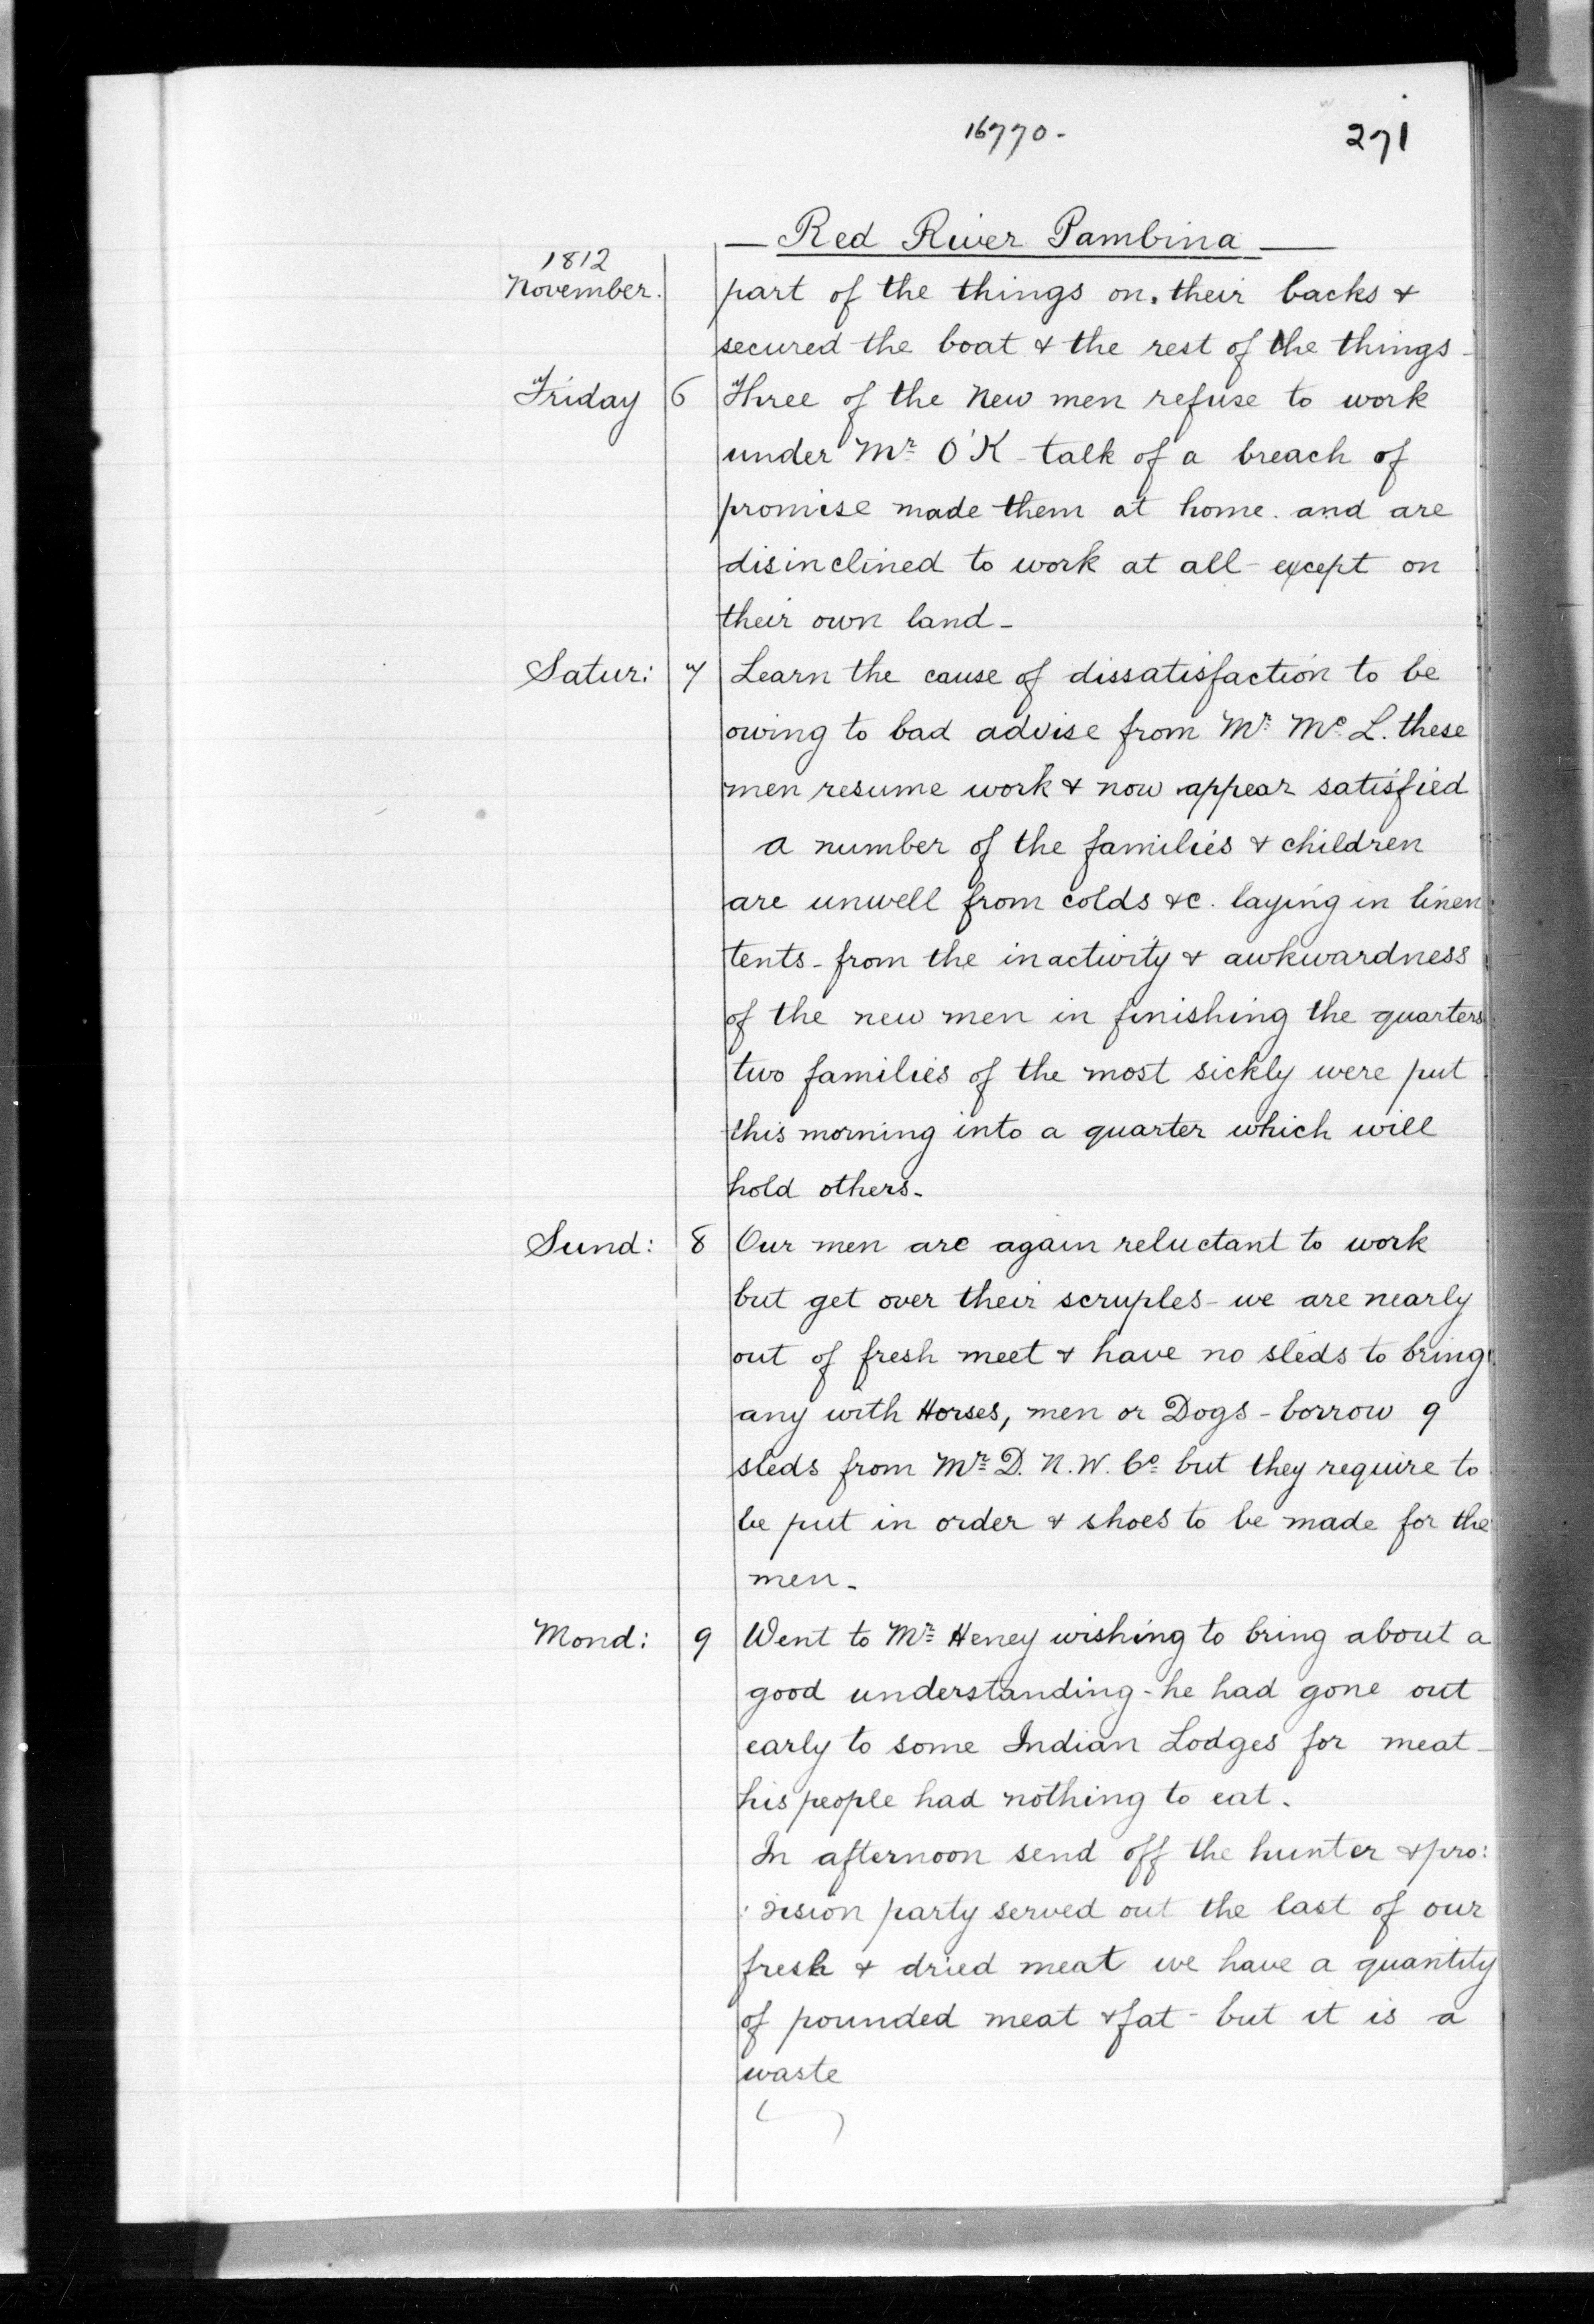 16770-
271
— Red River Pambina —
1812
November. part of the things on. their backs &
secured the boat & the rest of the things -
Friday 6 Three of the New men refuse to work
under Mr. O'K - talk of a breach of
promise made them at home. and are
disinclined to work at all - except on
their own land -
Satur: 7 Learn the cause of dissatisfaction to be
owing to bad advise from Mr. Mc. L. these
men resume work & now appear satisfied
a number of the families & children
are unwell from colds &c. laying in linen
tents - from the inactivity & awkwardness
of the new men in finishing the quarters
two families of the most sickly were put
this morning into a quarter which will
hold others -
Sund: 8 Our men are again reluctant to work
but get over their scruples - we are nearly
out of fresh meet & have no sleds to bring
any with Horses, men or Dogs - borrow 9
sleds from Mr. D. N.W. Co. but they require to
be put in order & shoes to be made for the
men -
Mond: 9 Went to Mr. Heney wishing to bring about a
good understanding - he had gone out
early to some Indian Lodges for meat -
his people had nothing to eat.
In afternoon send off the hunter & pro:
:vision party served out the last of our
fresh & dried meat we have a quantity
of pounded meat & fat - but it is a
waste